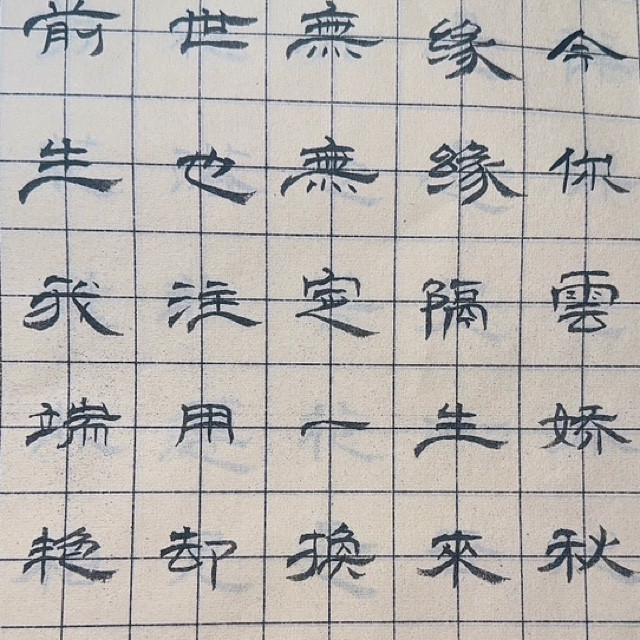 前世無緣今
生也無緣你
我注定隔雲
端用一生嬌
艳却換來秋